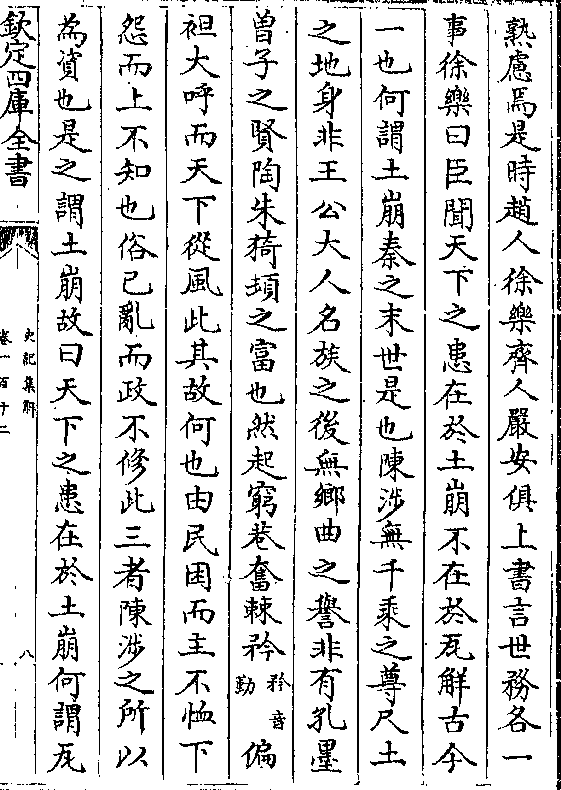 熟慮焉是時趙人徐樂齊人嚴安俱上書言世務各一
事徐樂曰臣聞天下之患在於土崩不在於瓦解古今
一也何謂土崩秦之末世是也陳涉無千乘之尊尺土
之地身非王公大人名族之後無鄉曲之譽非有孔墨
曾子之賢陶朱猗頓之富也然起窮巷奮棘矜矜音勤偏
袒大呼而天下從風此其故何也由民困而主不恤下
怨而上不知也俗已亂而政不修此三者陳涉之所以
為資也是之謂土崩故曰天下之患在於土崩何謂瓦
欽定四庫全書
史記集解
卷一百十二
八